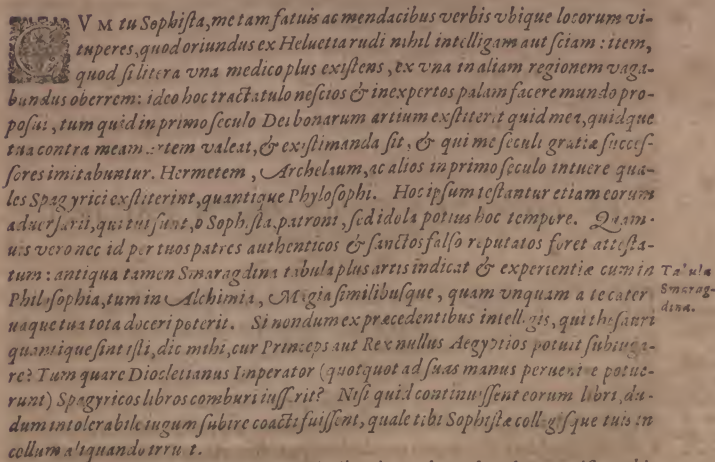 CVM tu Sophiſta, me tam fatuis ac mendacibus verbis vbique locorum vi-
tuperes, quod oriundus ex Heluetia rudi nihil intelligam aut ſciam: item,
quod ſi litera vna medico plus exiſtens, ex vna in aliam regionem vaga-
bundus oberrem: ideo hoc tractatulo neſcios & inexpertos palam facere mundo pro-
poſui, tum quid in primo ſeculo Dei bonarum artium exſtiterit quid mea, quidque
tua contra meam artem valeat, & exiſtimanda ſit, & qui me ſeculi gratiæ ſucceſ-
ſores imitabuntur. Hermetem, Archelaum, ac alios in primo ſeculo intuere qua-
les Spagyrici exſtiterint, quantique Phyloſophi. Hoc ipſum teſtantur etiam eorum
aduerſarii, qui tui ſunt, o Sophiſta, patroni, ſed idola potius hoc tempore. Quam-
uis vero nec id per tuos patres authenticos & ſanctos falſo reputatos foret atteſta-
tum: antiqua tamen Smaragdina tabula plus artis indicat & experientiæ cum in
Philoſophia, tum in Alchimia, Magia ſimilibuſque, quam vnquam a te cater
uaque tua tota doceri poterit. Si nondum ex præcedentibus intelligis, qui theſauri
quantique ſint iſti, dic mihi, cur Princeps aut Rex nullus Aegyptios potuit ſubiuga-
re? Tum quare Diocletianus Imperator (quotquot ad ſuas manus peruenire potue-
runt) Spagyricos libros comburi iuſſerit? Niſi quid continuiſſent eorum libri, du-
dum intolerabile iugum ſubire coacti fuiſſent, quale tibi Sophiſtæ collegiſque tuis in
collum aliquando irruet.
Tabula
Smarag-
dina.